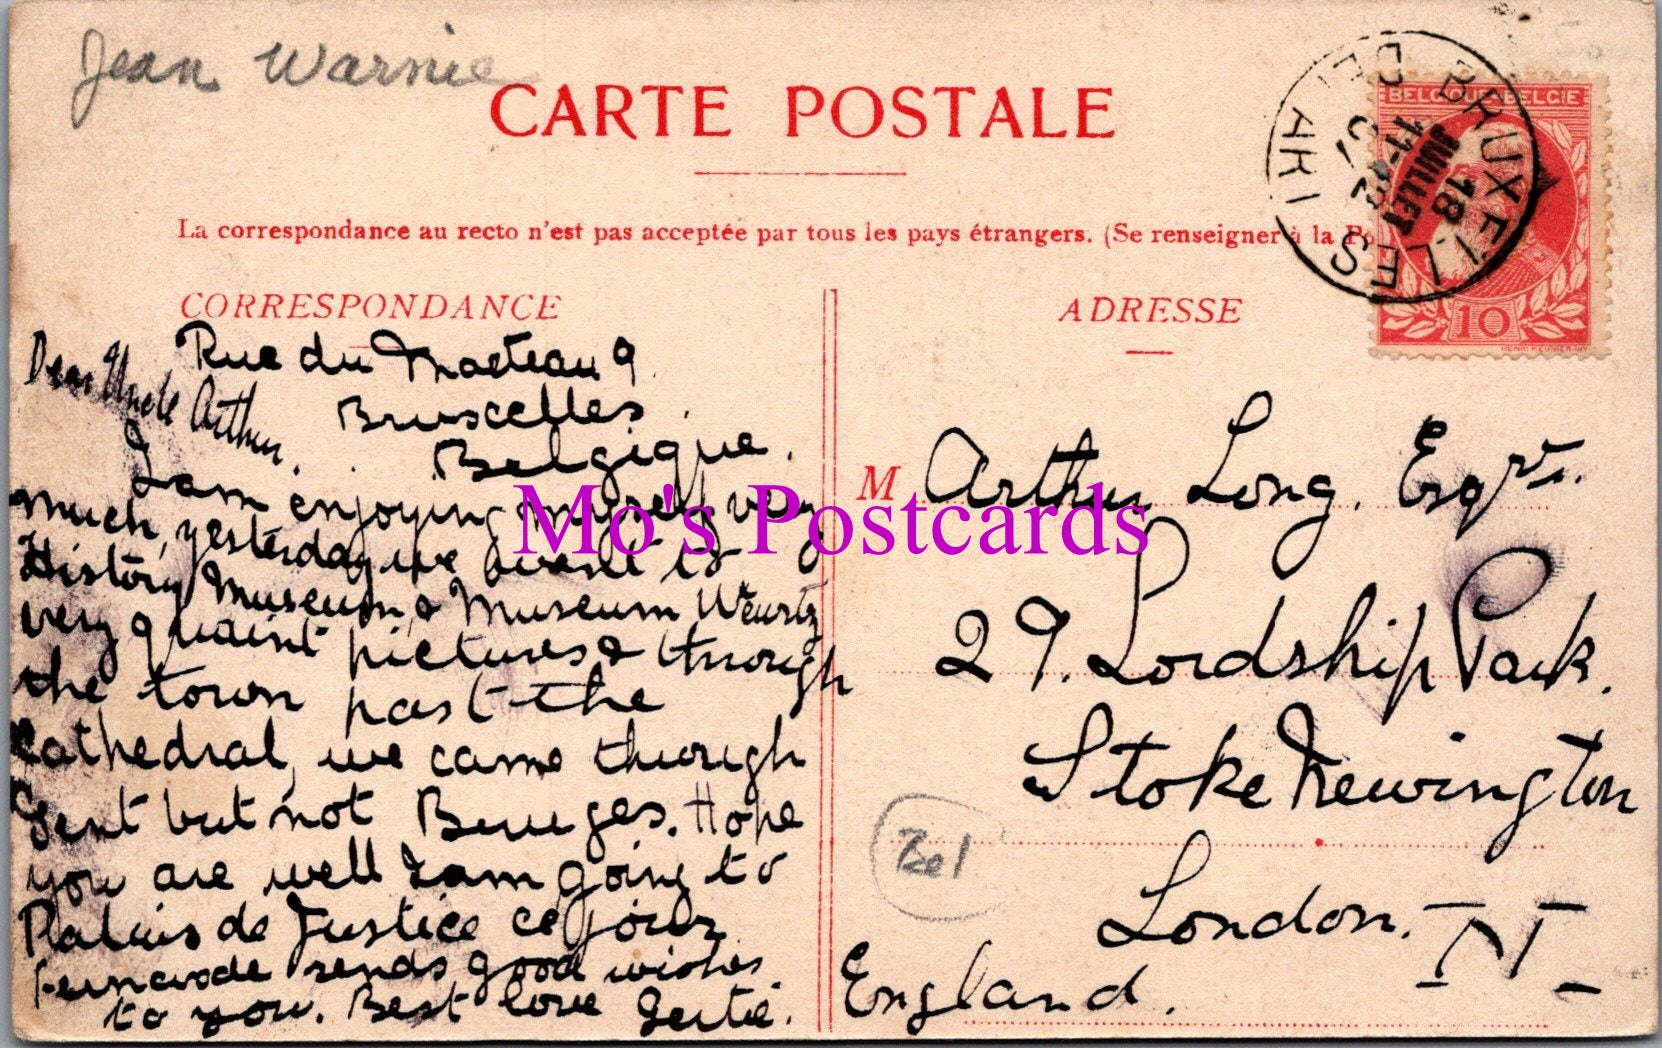 Jean Warnie
CARTE POSTALE
BELGIQUE BELGIE
BRUXELLES
18
JUILLET
11-12
07
DEPART
10
La correspondance au recto n'est pas acceptée par tous les pays étrangers. (Se renseigner à la Po
CORRESPONDANCE
ADRESSE
Rue du Marteau 9
Bruxelles.
Belgique.
Dear Uncle Arthur.
I am enjoying myself very
much, yesterday we went to
History Museum, & Museum Weurtz
very quaint pictures & through
the town past the
Cathedral, we came through
Gent but not Bruges. Hope
you are well I am going to
Palais de Justice ce jour
sends good wishes
to you. Best love Gertie.
M Arthur Long. Esqre.
29. Lordship Park.
Stoke Newington
London. N.
England.
Bel
Mo's Postcards